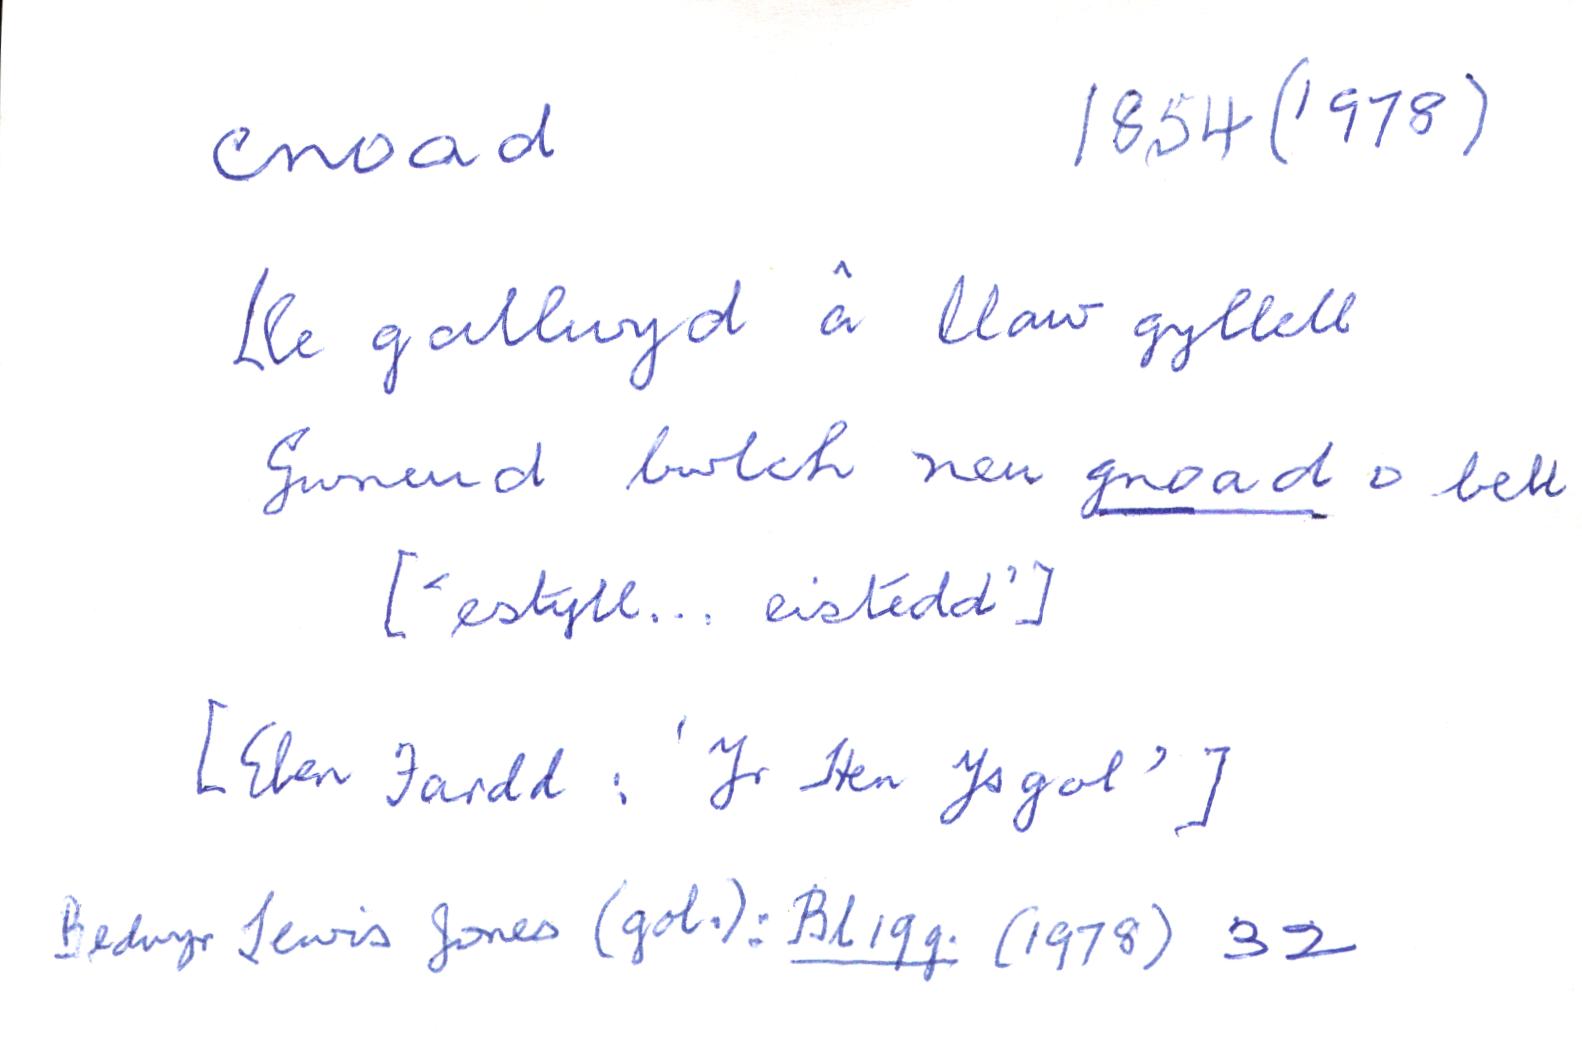 cnoad 1854 (1978)
Lle galluwyd â llaw gyllell
Gwneud bwlch neu gnoad o bell
['estyll... eistedd']
[Eben Fardd: 'Yr Hen Ysgol']
Bedwyr Lewis Jones (gol.): Bl 19g. (1978) 32